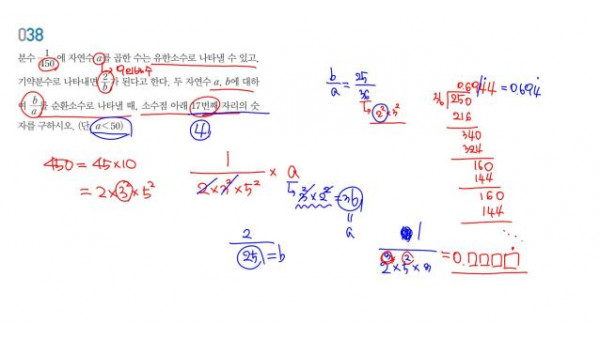 038
분수 1/450 에 자연수 a를 곱한 수는 유한소수로 나타낼 수 있고,
기약분수로 나타내면 /b가 된다고 한다. 두 자연수 a, b에 대하
여 b/a를 순환소수로 나타낼 때, 소수점 아래 17번째 자리의 숫
자를 구하시오. (단, a<50)
4
450 = 45×10
= 2×3²×5²
1/(2×3²×5²) × a
3²×2² = 36
=
a
2/25 = b
b/a = 25/36
2²×3²
0.6944 = 0.694
36 250
216
340
324
160
144
160
144
1/(2×5×3) = 0.□□□□